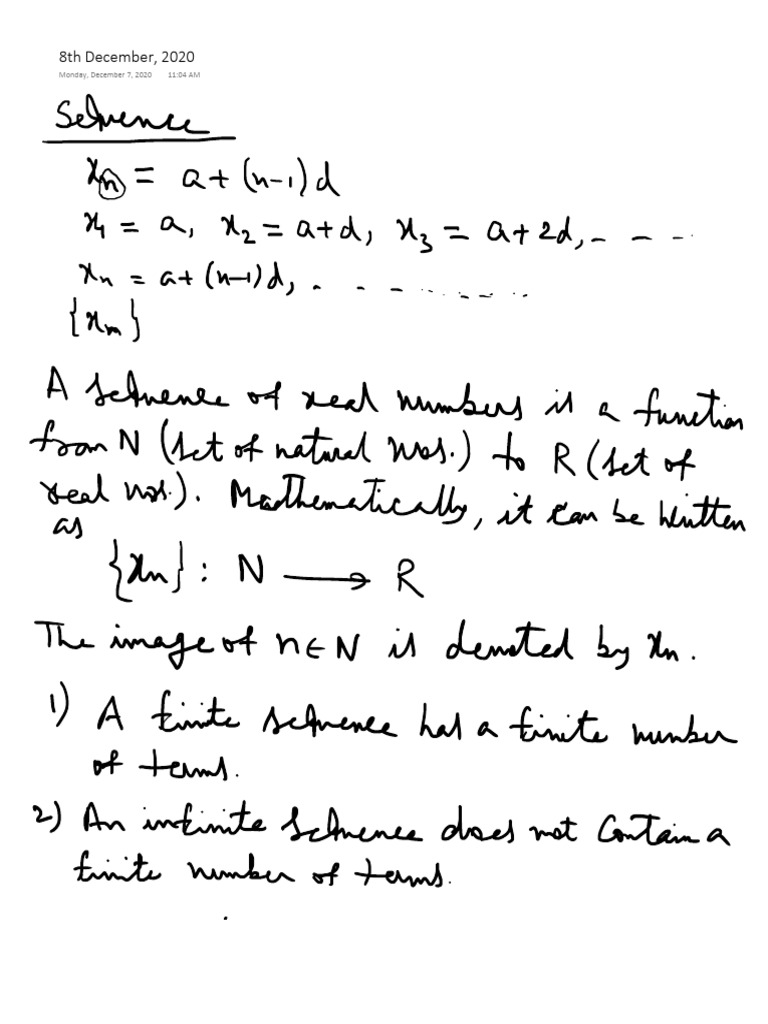 8th December, 2020
Monday, December 7, 2020 11:04 AM
Sequence
xₙ = a + (n-1)d
x₁ = a, x₂ = a+d, x₃ = a+2d, - - --
xₙ = a+(n-1)d, . - - - ........
{xₙ}
A sequence of real numbers is a function
from N (set of natural nos.) to R (set of
real nos.). Mathematically, it can be written
as
{xₙ} : N ⟶ R
The image of n∈N is denoted by xₙ.
1) A finite sequence has a finite number
of terms.
2) An infinite sequence does not contain a
finite number of terms.